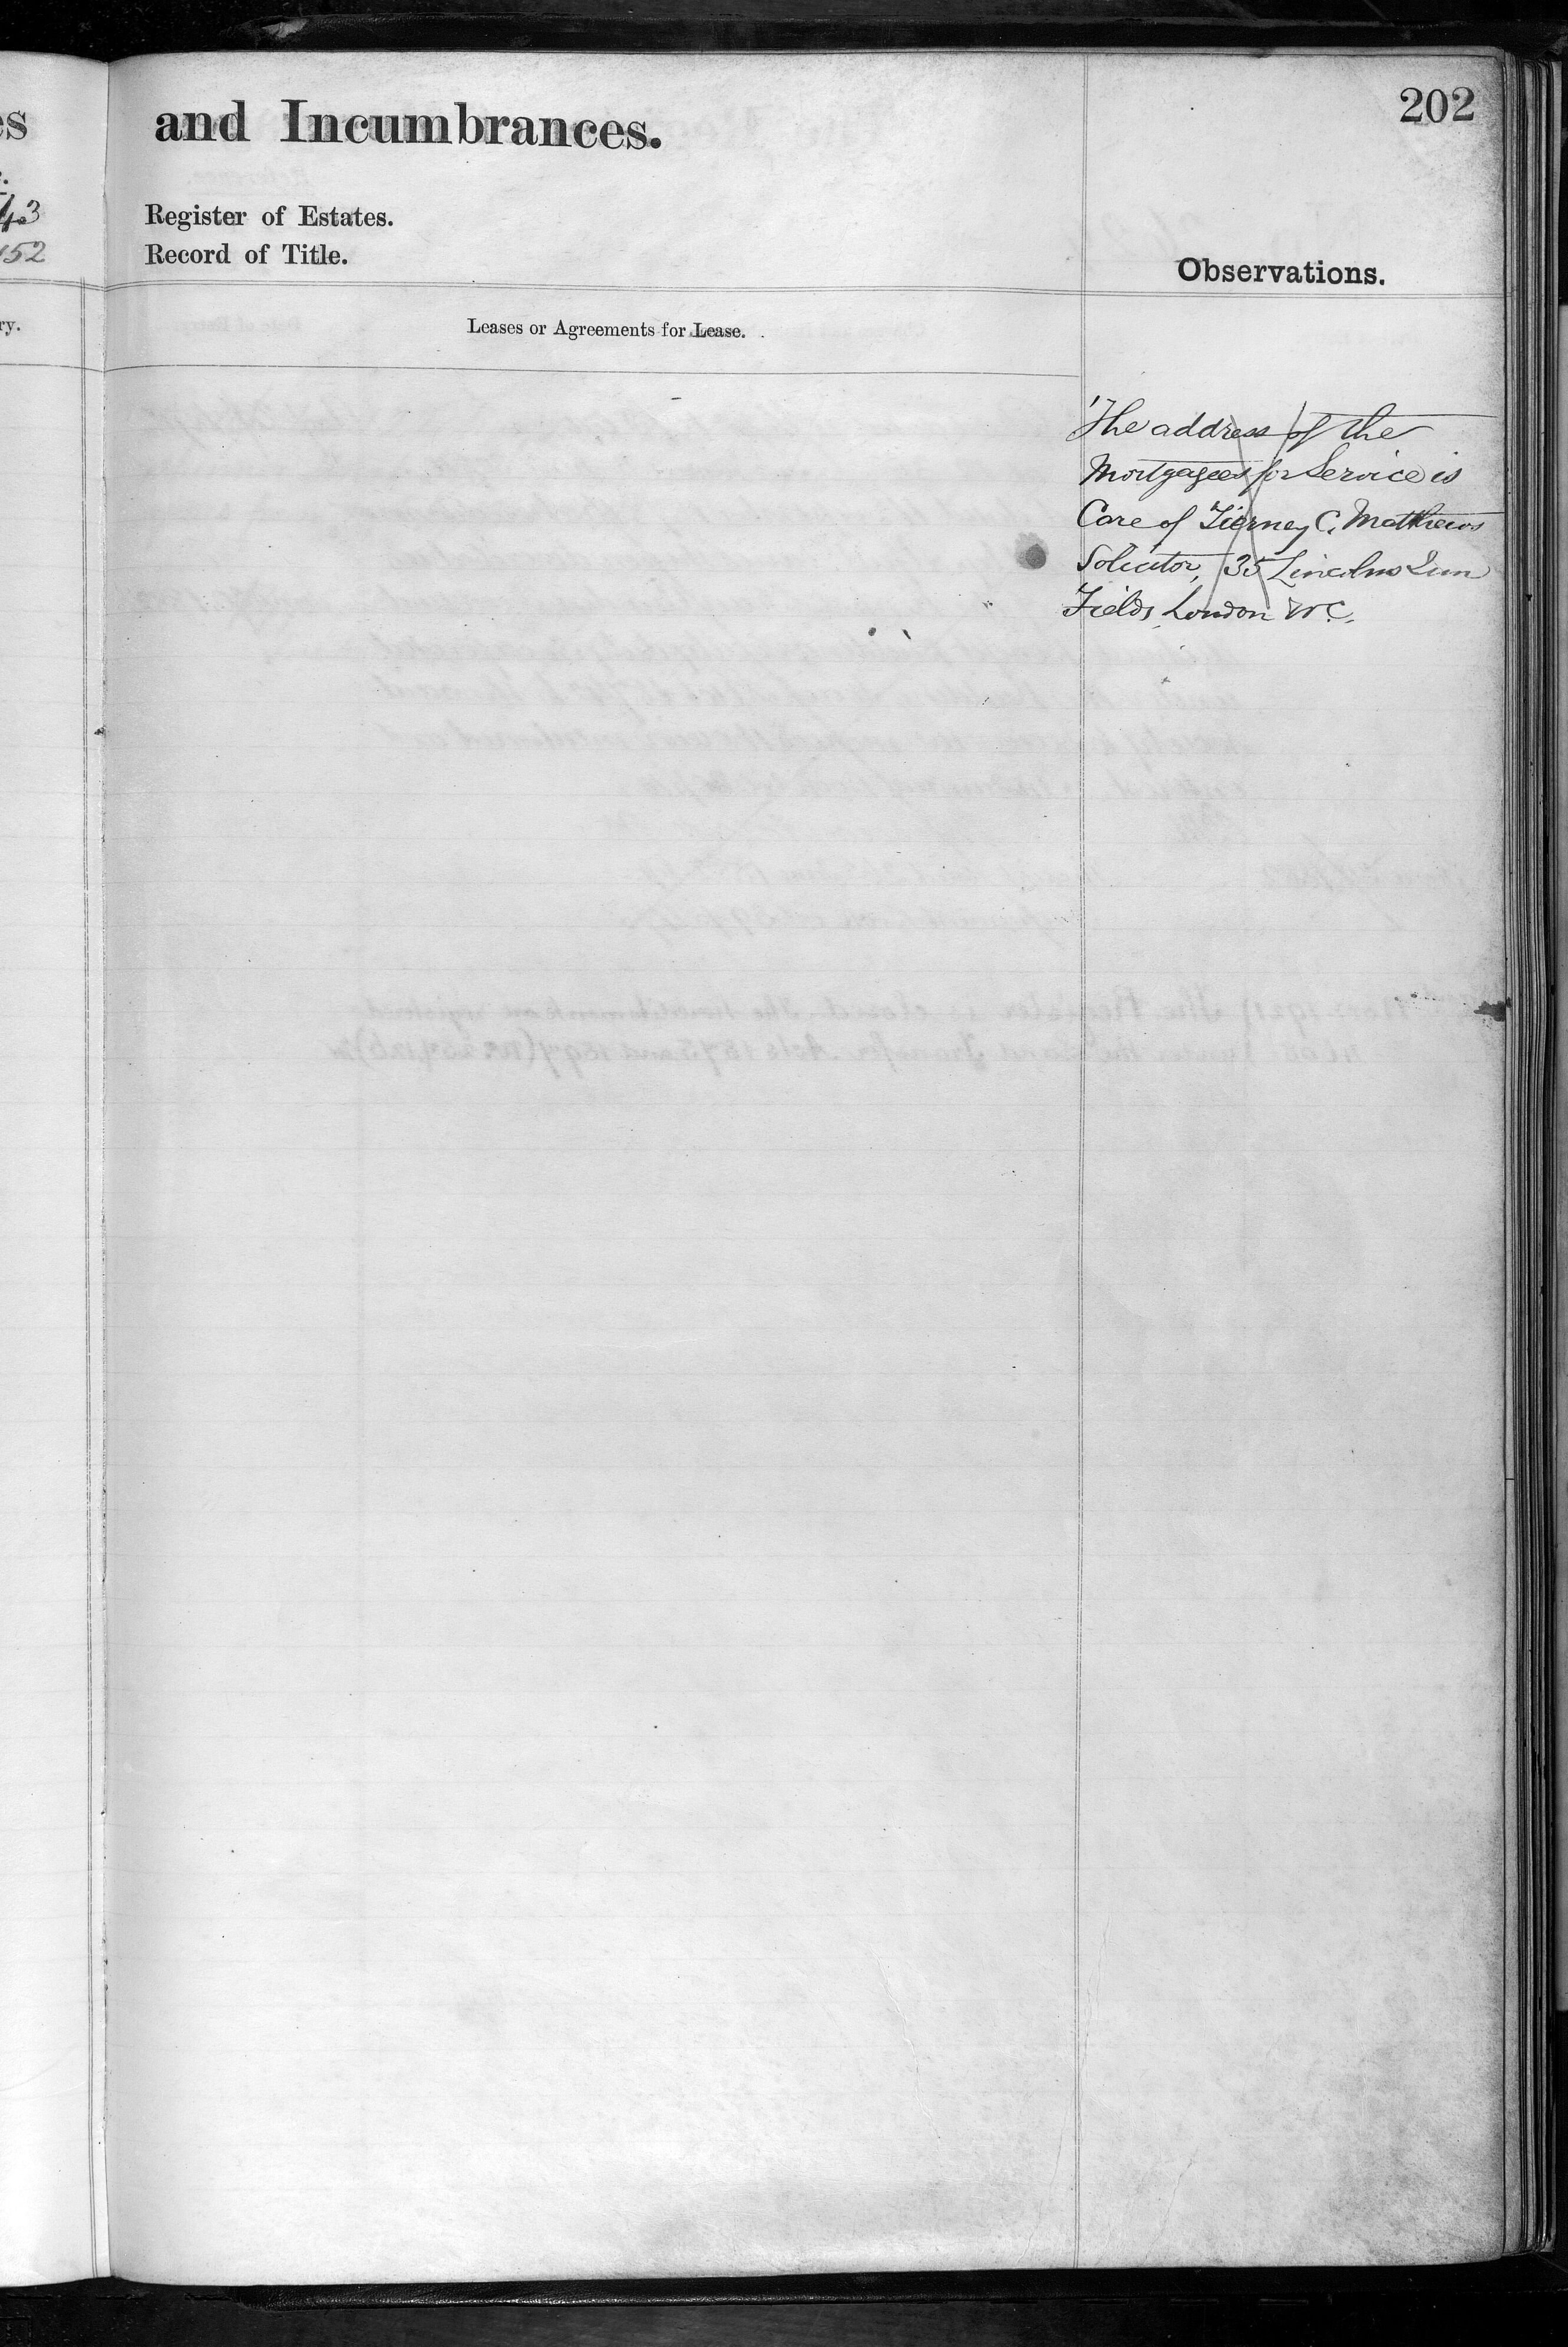 es
43
152
ry.
and Incumbrances.
202
Register of Estates.
Record of Title.
Observations.
Leases or Agreements for Lease.
The address of the
Mortgagees for Service is
Care of Tierney C. Matthews
Solicitor, 35 Lincolns Inn
Fields, London W.C.